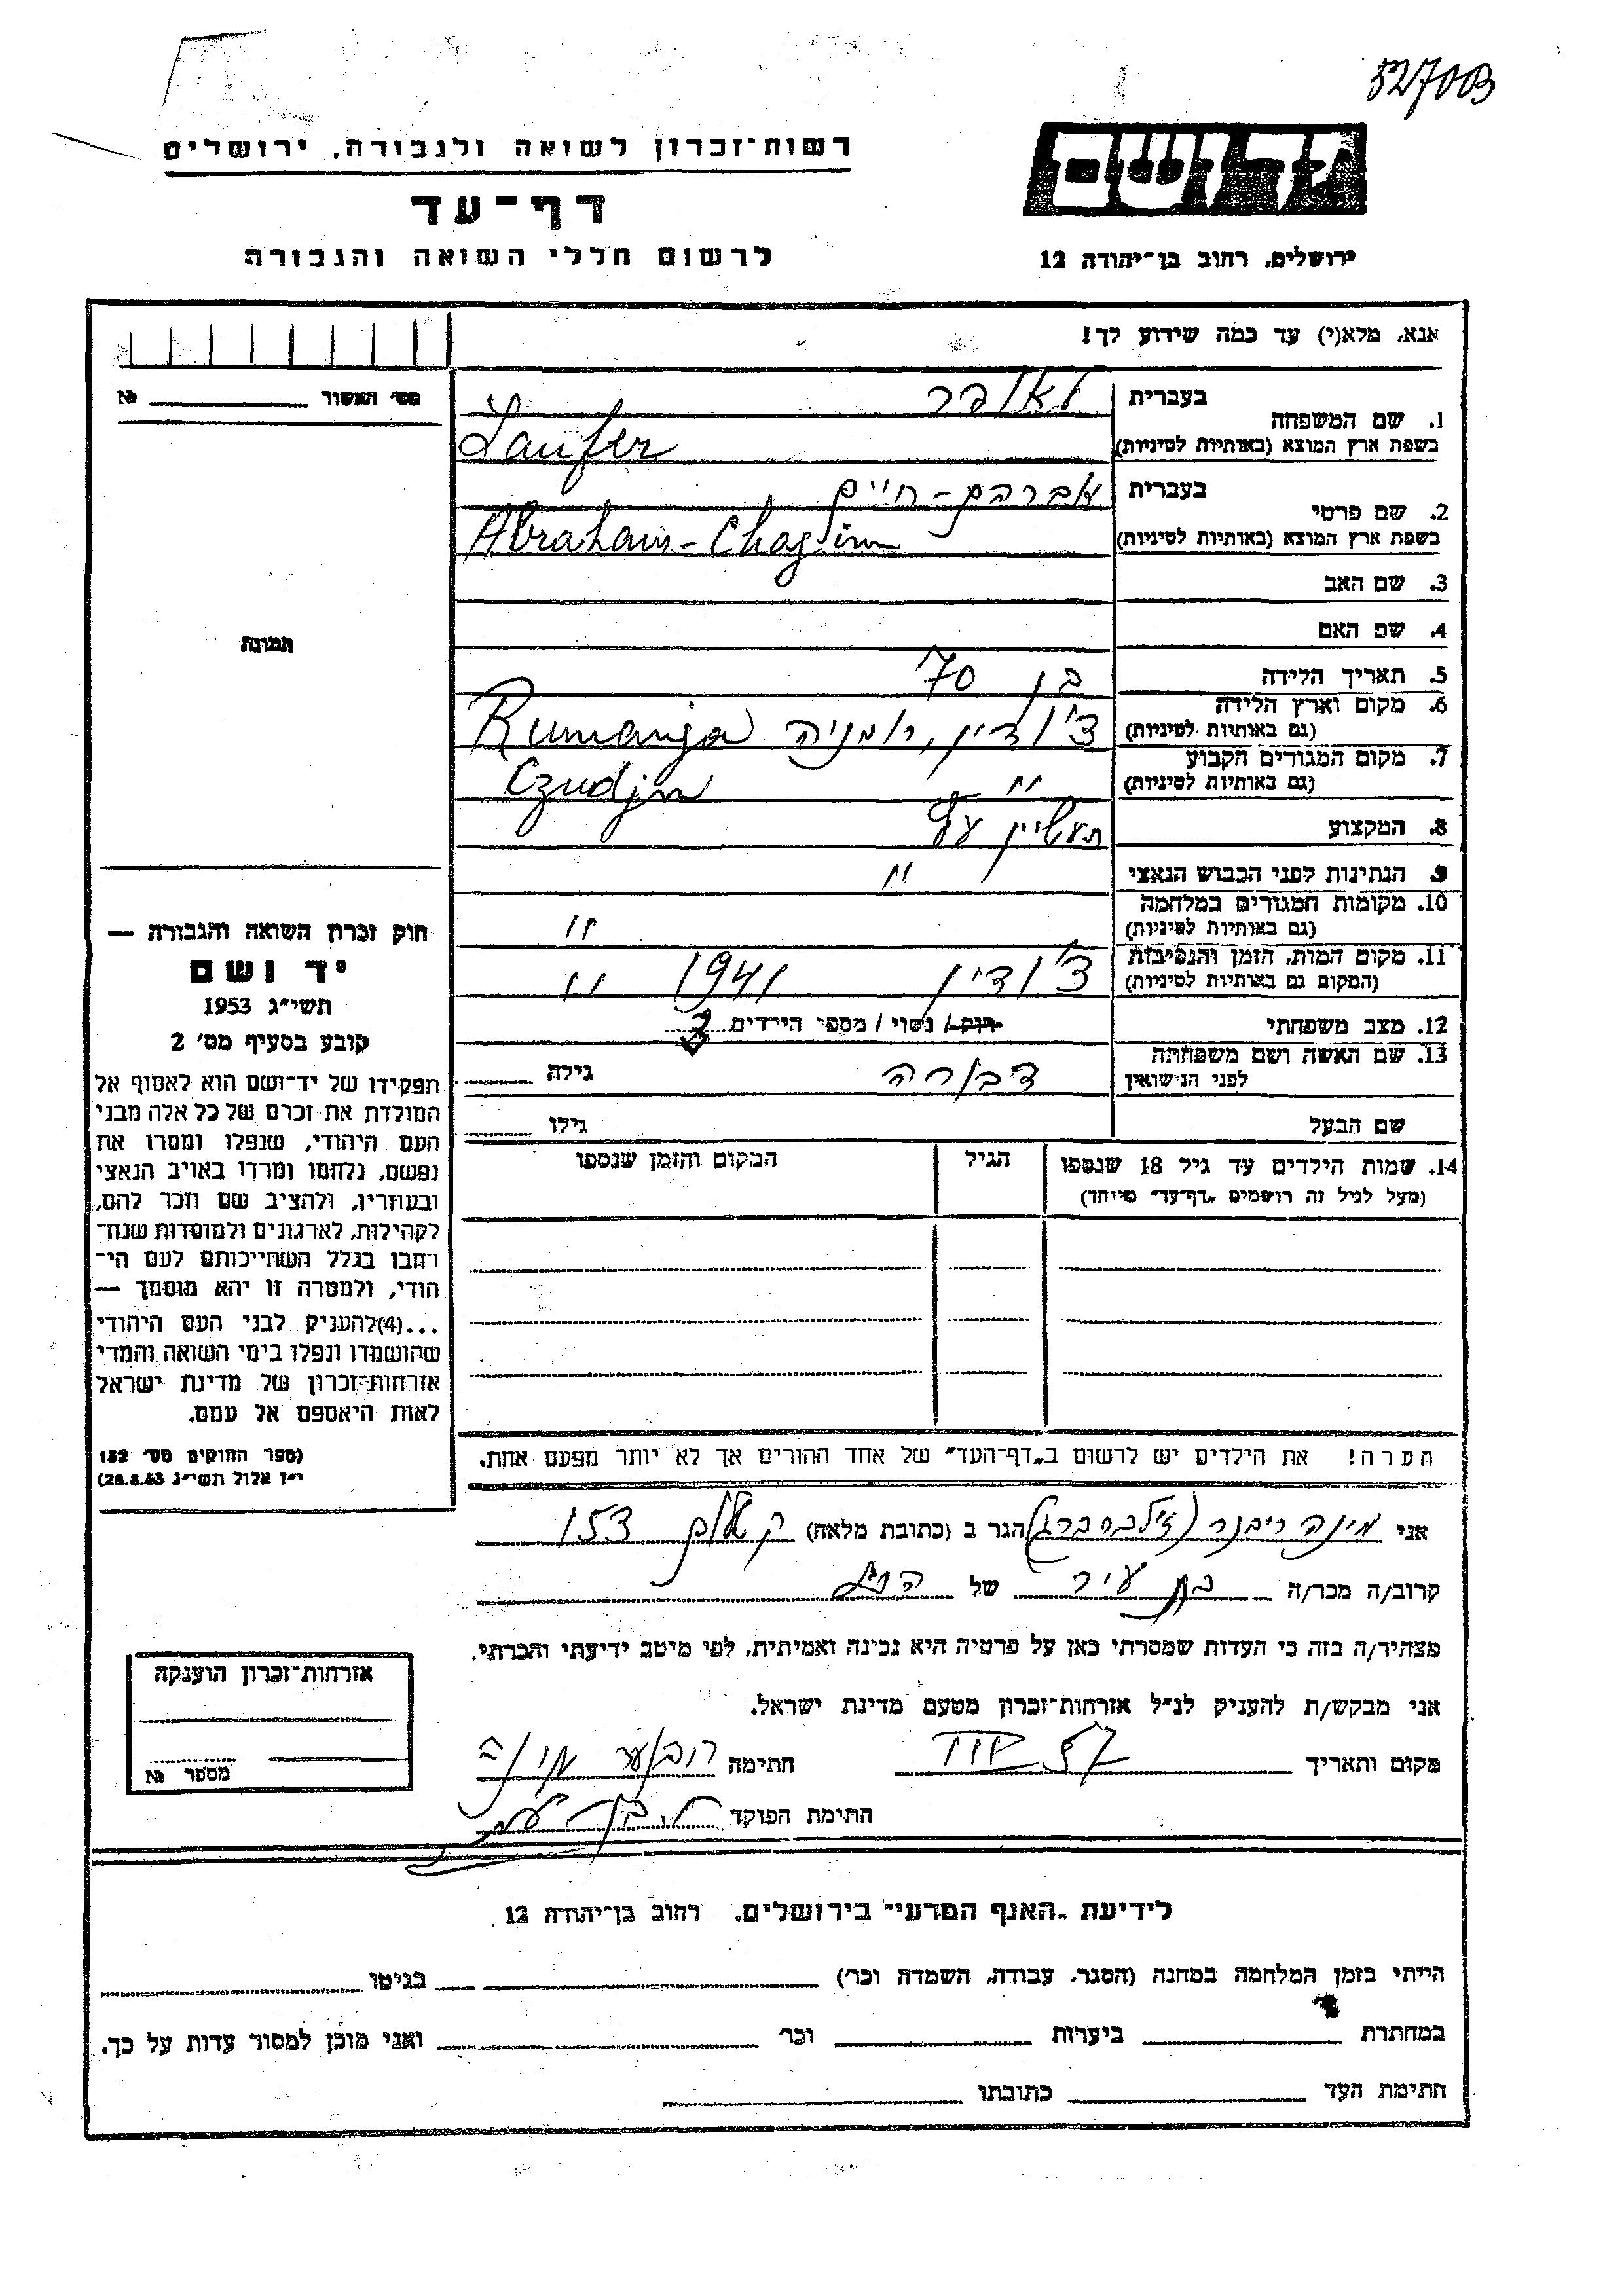 527003
יד ושם
רשות־זכרון לשואה ולגבורה, ירושלים
דף־עד
לרשום חללי השואה והגבורה
ירושלים, רחוב בן־יהודה 12
אנא, מלא(י) עד כמה שידוע לך!
מס׳ האשור № 
1. שם המשפחה
בעברית לאופר
בשפת ארץ המוצא (באותיות לטיניות) Laufer
2. שם פרטי
בעברית אברהם-חיים
בשפת ארץ המוצא (באותיות לטיניות) Abraham-Chajim
3. שם האב
4. שם האם
תמונה
5. תאריך הלידה בן 70
6. מקום וארץ הלידה
(גם באותיות לטיניות) צ'ודין, רומניה Rumanja
7. מקום המגורים הקבוע
(גם באותיות לטיניות) " Czudjn
8. המקצוע תעשיין עץ
9. הנתינות לפני הכבוש הנאצי "
10. מקומות המגורים במלחמה
(גם באותיות לטיניות) "
11. מקום המות, הזמן והנסיבות
(המקום גם באותיות לטיניות) צ'ודין 1941 "
12. מצב משפחתי רווק / נשוי / מספר הילדים
13. שם האשה ושם משפחתה
לפני הנישואין דבורה גילה
שם הבעל גילו
14. שמות הילדים עד גיל 18 שנספו הגיל המקום והזמן שנספו
(מעל לגיל זה רושמים „דף־עד" מיוחד)
חוק זכרון השואה והגבורה —
יד ושם
תשי״ג 1953
קובע בסעיף מס׳ 2
תפקידו של יד־ושם הוא לאסוף אל
המולדת את זכרם של כל אלה מבני
העם היהודי, שנפלו ומסרו את
נפשם, נלחמו ומרדו באויב הנאצי
ובעוזריו, ולהציב שם וזכר להם,
לקהילות, לארגונים ולמוסדות שנח־
רחבו בגלל השתייכותם לעם הי־
הודי, ולמטרה זו יהא מוסמך —
...(4) להעניק לבני העם היהודי
שהושמדו ונפלו בימי השואה והמרי
אזרחות־זכרון של מדינת ישראל
לאות היאספם אל עמם.
(ספר החוקים מס׳ 132
י״ז אלול תשי״ג 28.8.53)
הערה! את הילדים יש לרשום ב„דף־העד" של אחד ההורים אך לא יותר מפעם אחת.
אני מינה ריבנר (זילברברג) הגר ב (כתובת מלאה) 153
קרוב/ה מכר/ה בן עיר של הנ"ל
מצהיר/ה בזה כי העדות שמסרתי כאן על פרטיה היא נכונה ואמיתית, לפי מיטב ידיעתי והכרתי.
אני מבקש/ת להעניק לנ״ל אזרחות־זכרון מטעם מדינת ישראל.
מקום ותאריך 57 חתימה
חתימת הפוקד
אזרחות־זכרון הוענקה
מספר №
לידיעת „האגף המדעי" בירושלים, רחוב בן־יהודה 12
הייתי בזמן המלחמה במחנה (הסגר, עבודה, השמדה וכו׳) בגיטו
במחתרת ביערות וכו׳ ואני מוכן למסור עדות על כך.
חתימת העד כתובתו